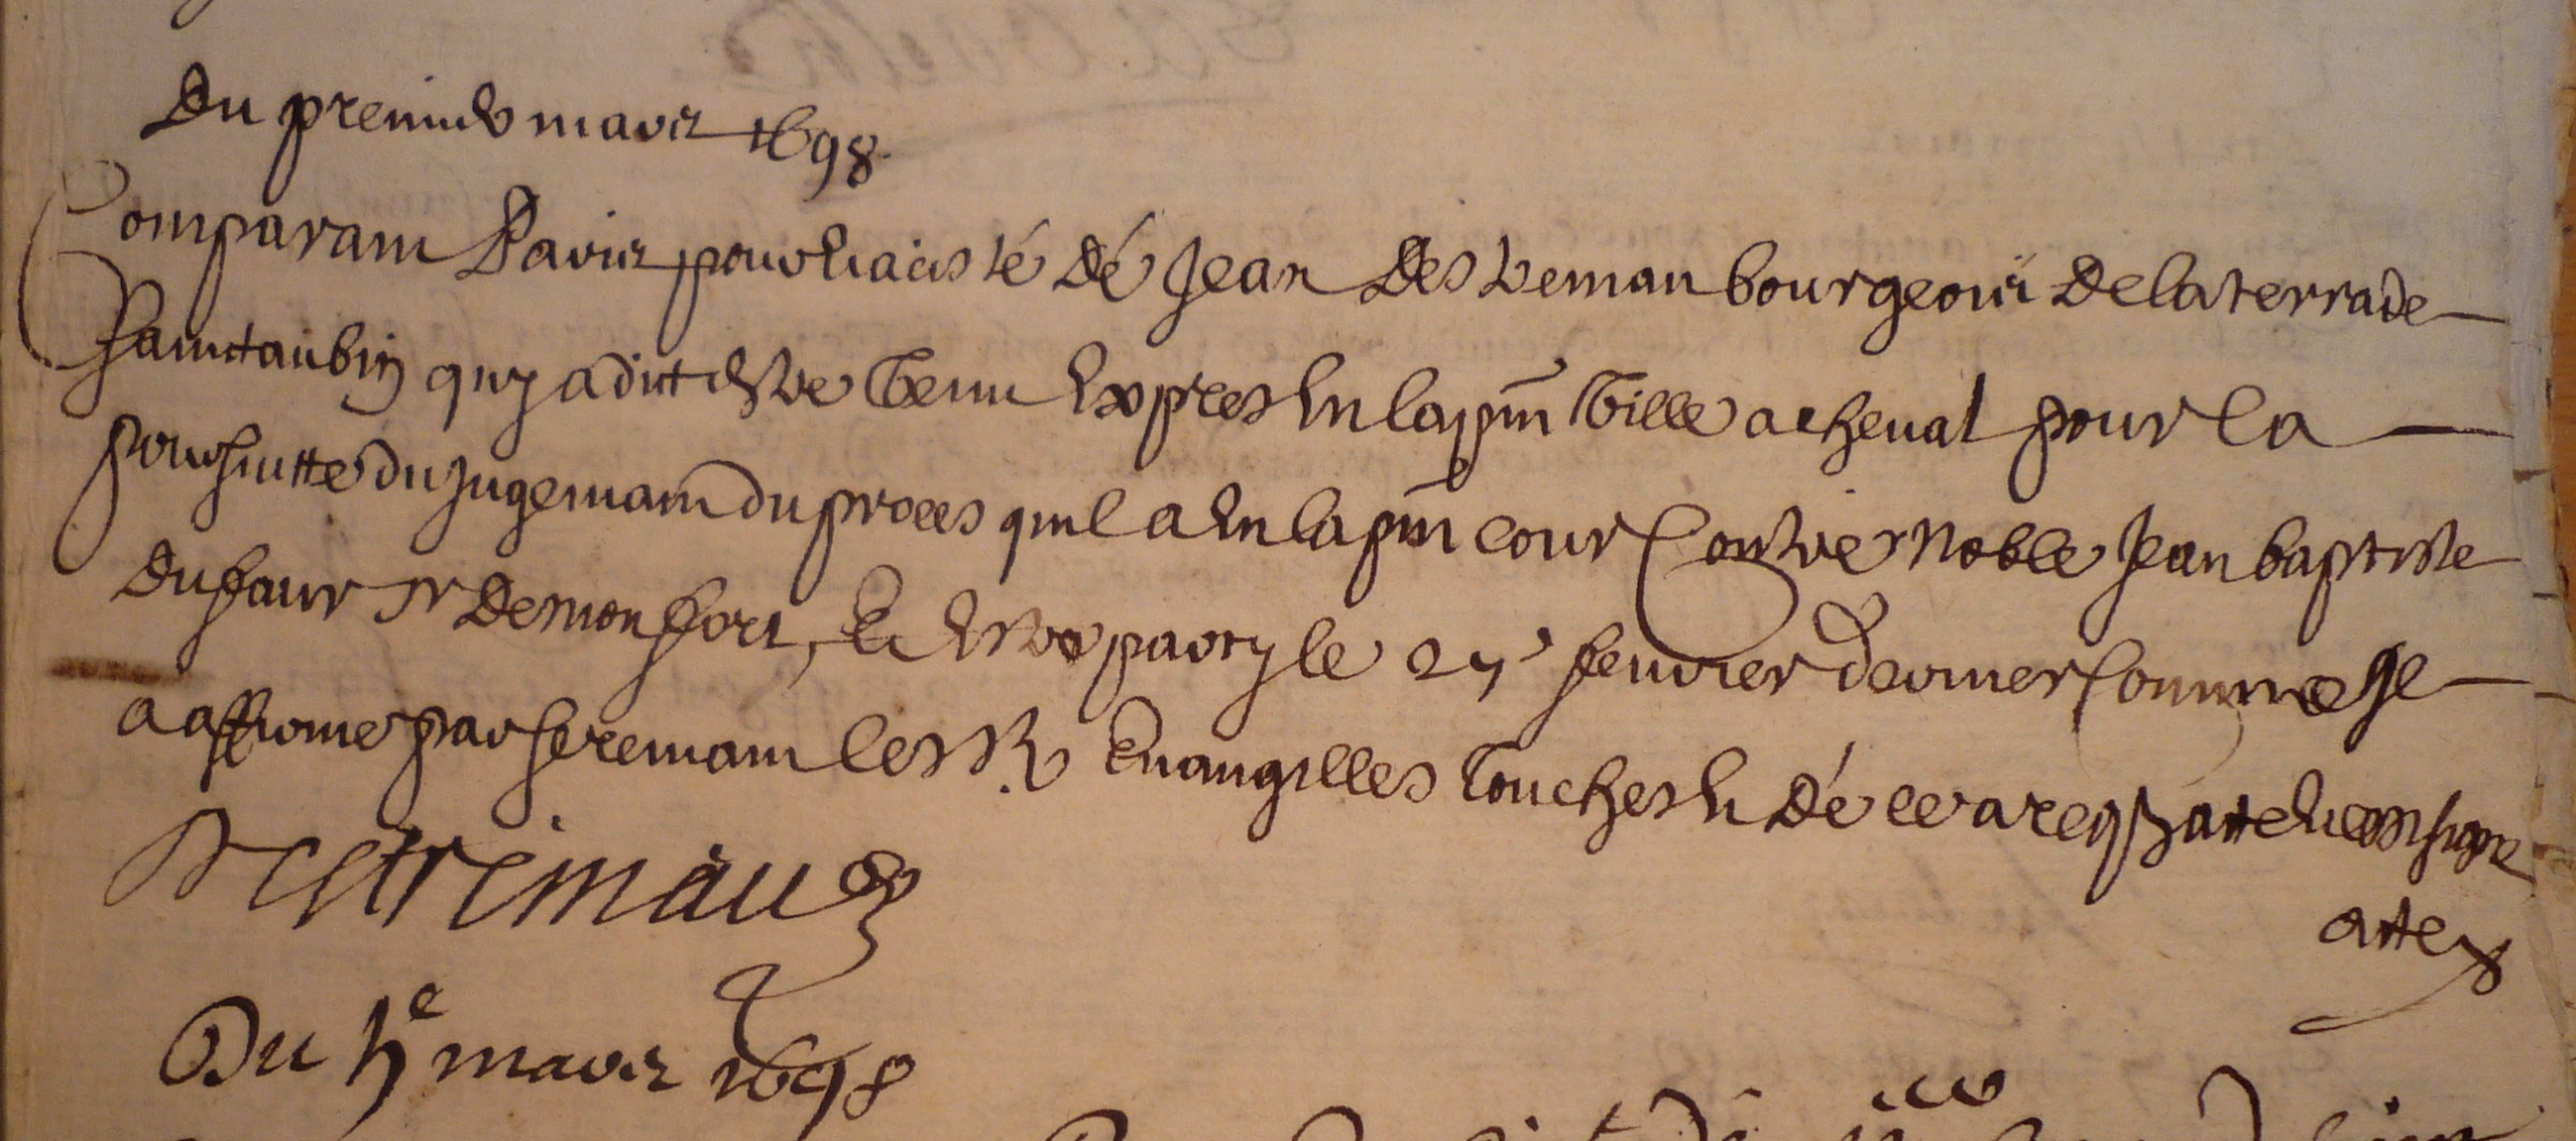 Du premier mars 1698
Comparant Paris pour et aciste de Jean destreman bourgeois de laterrade
saint aubin quy a dit estre venu expres en la pnt ville a cheval pour la
poursuitte du jugemant du proces quil a en la pnt cour contre noble Jean baptiste
dufaur sr de monfort, et estre party le 27e fevrier dernier comme Je
a affirme par seremant les Sts Evangilles touches et de ce a requis atte et cest signe
Destremau
atte
Du 5e mars 1698